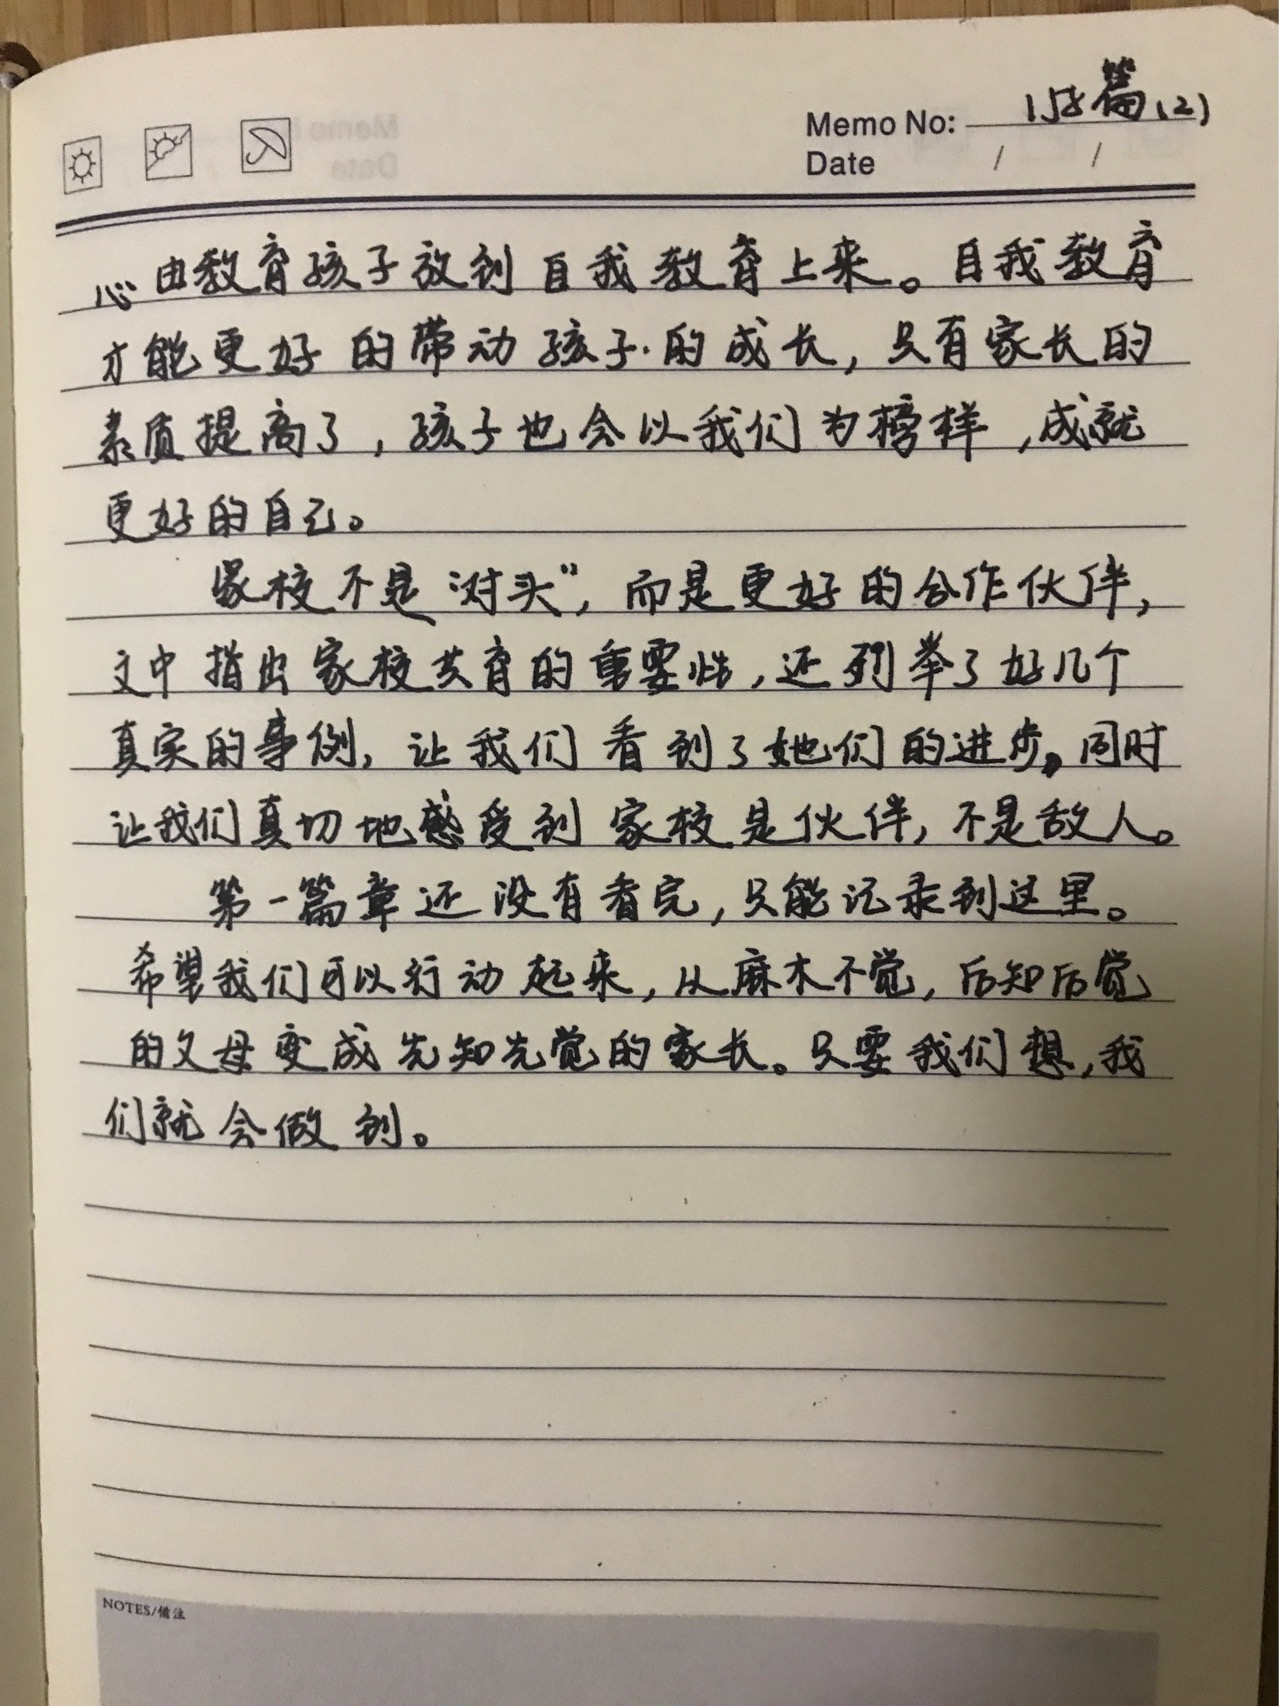 Memo No: 1st篇(2)
Date / /
心由教育孩子放到自我教育上来。自我教育
才能更好的带动孩子的成长，只有家长的
素质提高了，孩子也会以我们为榜样，成就
更好的自己。
家校不是“对头”，而是更好的合作伙伴，
文中指出家校共育的重要性，还列举了好几个
真实的事例，让我们看到了她们的进步。同时
让我们真切地感受到家校是伙伴，不是敌人。
第一篇章还没有看完，只能记录到这里。
希望我们可以行动起来，从麻木不觉，后知后觉
的父母变成先知先觉的家长。只要我们想，我
们就会做到。
NOTES/备注